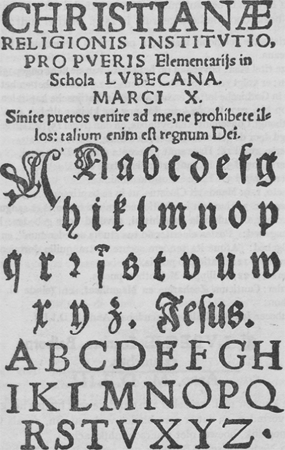 CHRISTIANÆ
RELIGIONIS INSTITVTIO,
PRO PVERIS Elementarijs in
Schola LVBECANA.
MARCI X.
Sinite pueros venire ad me, ne prohibete il-
los: talium enim est regnum Dei.
A a b c d e f g
h i k l m n o p
q r ꝛ ſ s t v u w
x y z. Jesus.
A B C D E F G H
I K L M N O P Q
R S T V X Y Z.